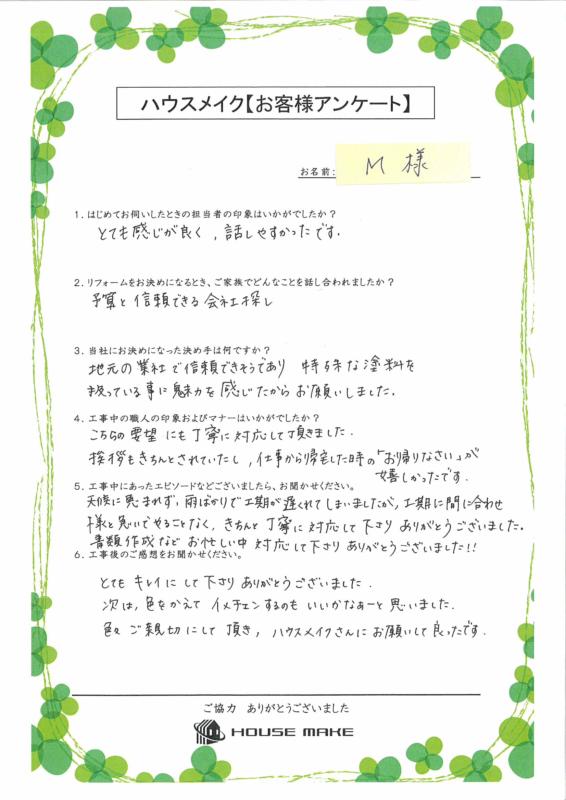 ハウスメイク【お客様アンケート】
お名前: M 様
1. はじめてお伺いしたときの担当者の印象はいかがでしたか？
とても感じが良く、話しやすかったです.
2. リフォームをお決めになるとき、ご家族でどんなことを話し合われましたか？
予算と信頼できる会社探し
3. 当社にお決めになった決め手は何ですか？
地元の業社で信頼できそうであり 特殊な塗料を
扱っている事に魅力を感じたからお願いしました.
4. 工事中の職人の印象およびマナーはいかがでしたか？
こちらの要望にも丁寧に対応して頂きました.
挨拶もきちんとされていたし, 仕事から帰宅した時の「お帰りなさい」が
嬉しかったです.
5. 工事中にあったエピソードなどございましたら、お聞かせください。
天候に恵まれず, 雨ばかりで工期が遅くれてしまいましたが, 工期に間に合わせ
様と急いでやることなく, きちんと丁寧に対応して下さり ありがとうございました.
書類作成など お忙しい中 対応して下さり ありがとうございました!!
6. 工事後のご感想をお聞かせください。
とても キレイにして下さり ありがとうございました.
次は, 色をかえて イメチェンするのも いいかなぁーと 思いました.
色々ご親切にして頂き, ハウスメイクさんにお願いして良ったです.
ご協力 ありがとうございました
HOUSE MAKE